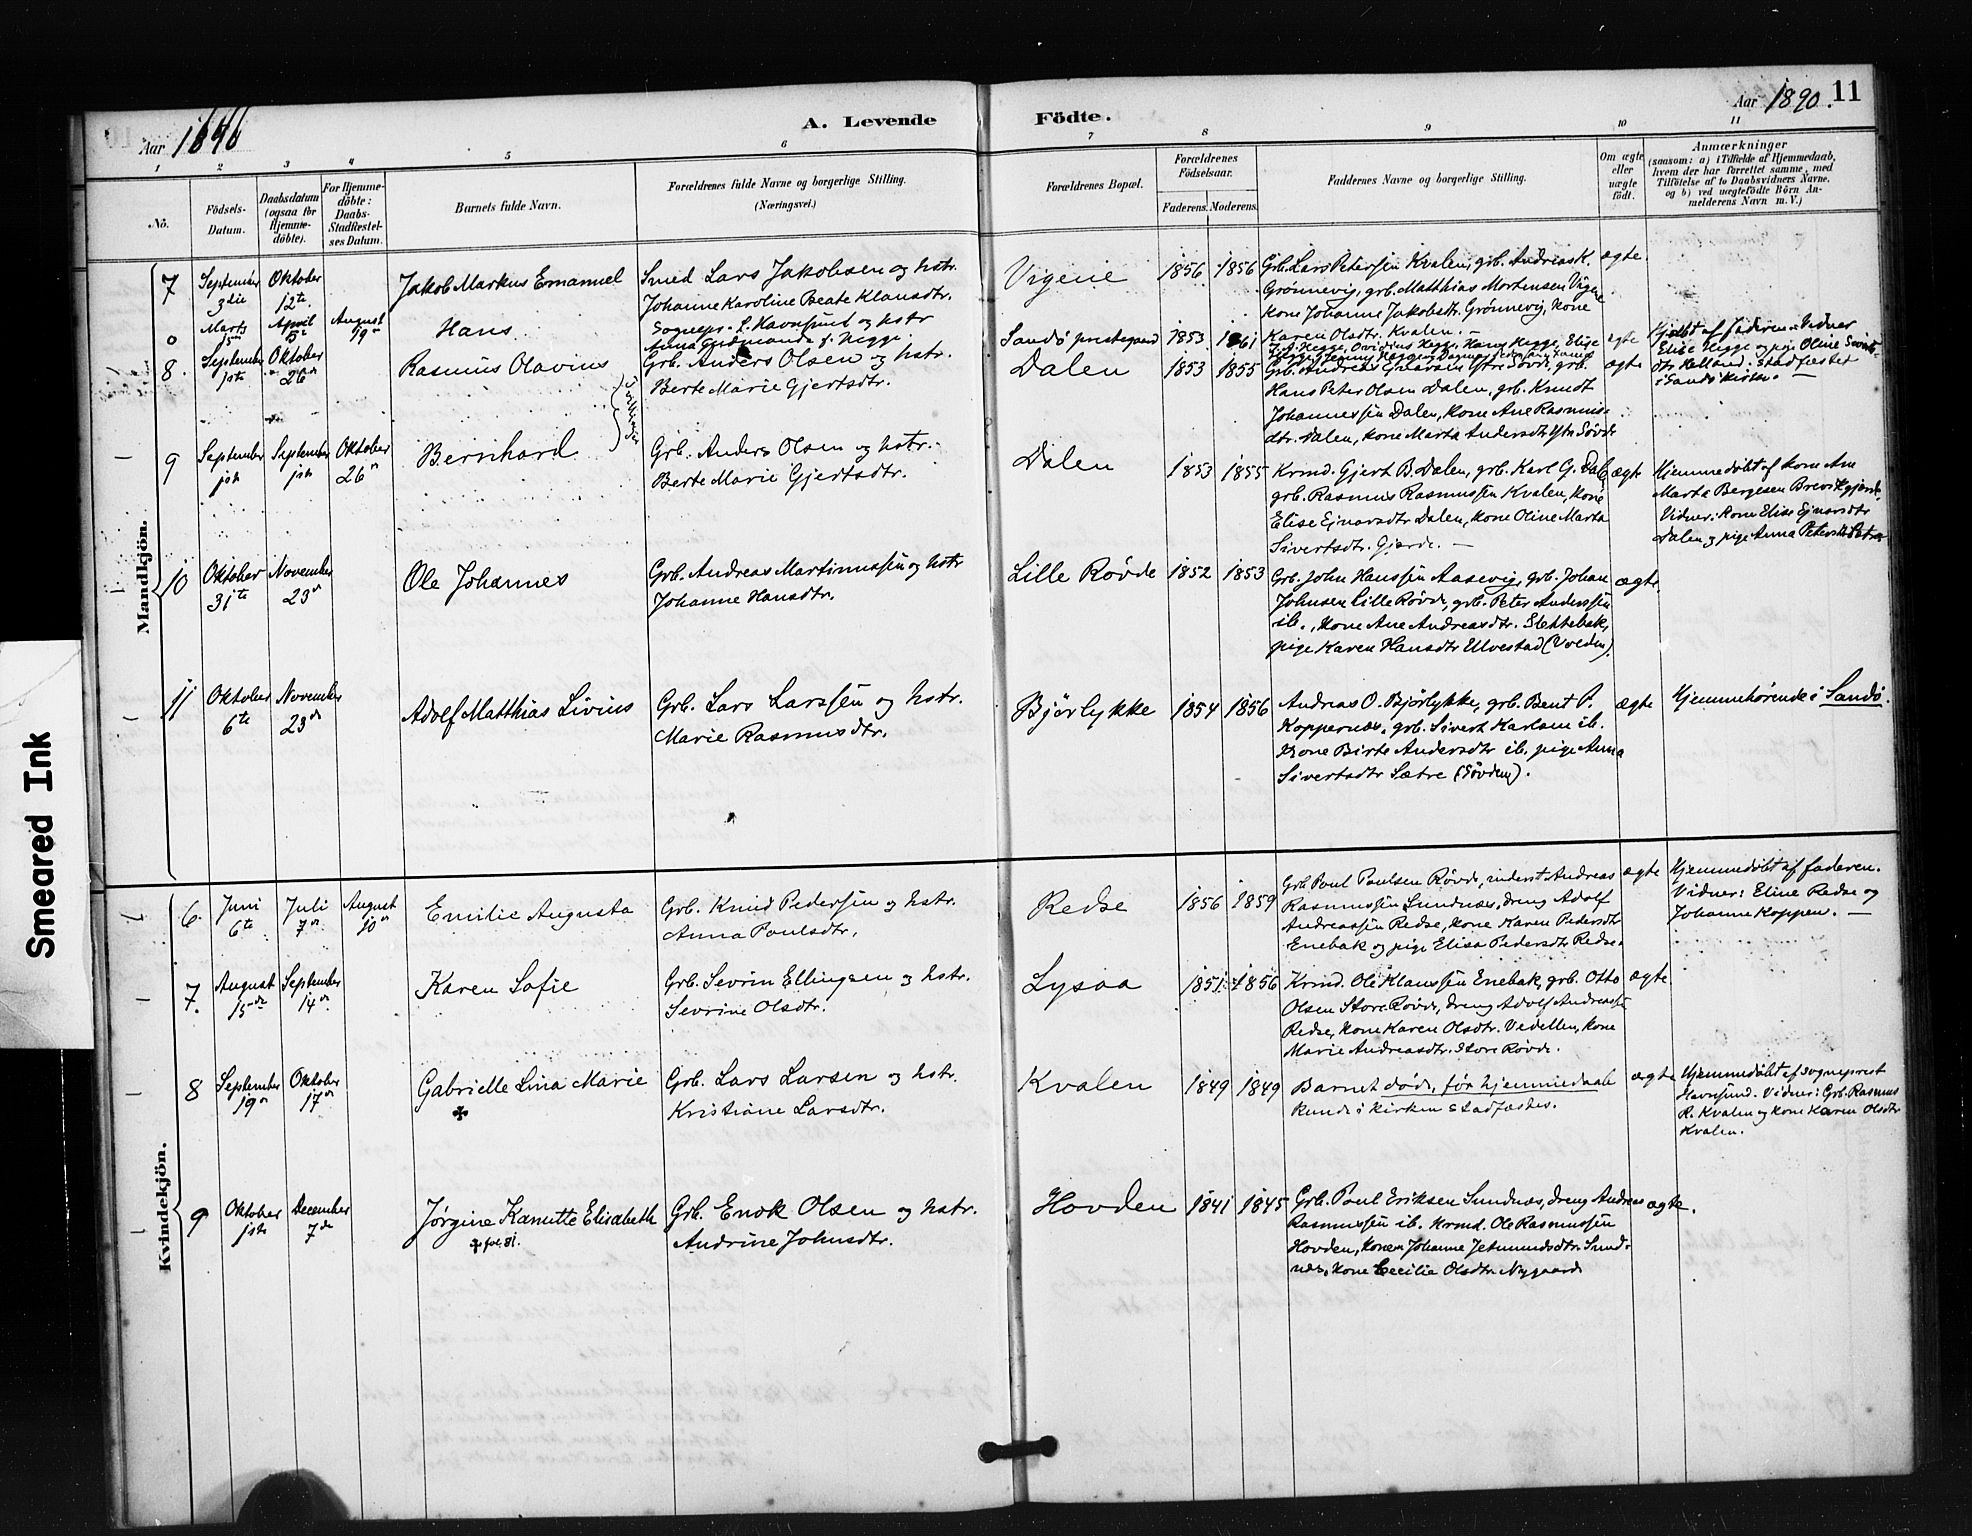 Aar 1890
A. Levende
Födte.
Aar 1890. 11
1 2 3 4 5 6 7 8 9 10 11
No.
Födsels-
Datum.
Daabsdatum
(ogsaa for
Hjemme-
döbte).
For Hjemme-
döbte:
Daabs-
Stadfæstel-
ses Datum.
Barnets fulde Navn.
Forældrenes fulde Navne og borgerlige Stilling.
(Næringsvei.)
Forældrenes Bopæl.
Forældrenes
Födselsaar.
Faderens. Moderens.
Faddernes Navne og borgerlige Stilling.
Om ægte
eller
uægte
födt.
Anmærkninger
(saasom: a) i Tilfælde af Hjemmedaab,
hvem der har forrettet samme, med
Tilföielse af to Daabsvidners Navne,
og b) ved uægtefödte Börn An-
melderens Navn m. V.)
Mandkjön.
7 September 3die Oktober 12te Jakob Markus Emanuel
Smed Lars Jakobsen og hstr.
Johanne Karoline Beate Klausdtr.
Vigene 1856 1856
Grb. Lars Petersen Kvalen, grb. Andreas K.
Grønnevig, grb. Matthias Mortensen Vigene
kone Johanne Jakobsdtr. Grønnevig, kone
Karen Olsdtr. Kvalen.
ægte.
0 Marts April August 19 Hans.
Sognepr. L. Havnsund og hstr
Anna Gudmunda f. Hegge.
Sandø prestegaard 1853 1861
ægte
Hjdøbt af faderen. Vidner
Elise Hegge og pige Oline Siverts-
dtr. Helland. Stadfæstet
i Sandø kirke.
8. September 1ste Oktober 26 Rasmus Olavius
Grb. Anders Olsen og hstr.
Berte Marie Gjertsdtr.
Dalen 1853 1855
Hans Peter Olsen Dalen, grb. Knudt
Johannessen Dalen, kone Ane Rasmus-
dtr. Dalen, kone Marta Andersdtr Ytre Søvde
ægte
9 September 1ste September 1ste Oktober 26 Bernhard
Grb. Anders Olsen og hstr.
Berte Marie Gjertsdtr.
Dalen 1853 1855
Krmd. Gjert B. Dalen, grb. Karl G. Dale
grb. Rasmus Rasmussen Kvalen, kone
Elise Ejnarsdtr Dalen, kone Oline Marta
Sivertsdtr. Gjærde. —
ægte
Hjemmedøbt af kone Ane
Marta Bergesen Brevikgjærde.
Vidner: Kone Elise Ejnarsdtr
Dalen og pige Anna
10 Oktober 31te November 23 Ole Johannes
Grb. Andreas Martinussen og hstr
Johanne Hansdtr.
Lille Røvde 1852 1853
Grb. John Hanssen Aasevig, grb. Johan
Johnsen Lille Røvde, grb. Peter Anderssen
ib., kone Ane Andreasdtr. Slettebak,
pige Karen Hansdtr Ulvestad (Volden).
ægte.
11 Oktober 6te November 23 Adolf Matthias Livius
Grb. Lars Larssen og hstr.
Marie Rasmusdtr.
Bjørlykke 1854 1856
Andreas O. Bjørlykke, grb. Bent P.
Koppernæs, grb. Sivert Karlsen ib.
Kone Birte Andersdtr ib. pige Anna
Sivertsdtr Sætre (Søvden).
ægte
Hjemmehørende i Sandø.
Kvindekjön.
6. Juni 6te Juli 7 August 10 Emilie Augusta
Grb. Knud Pedersen og hstr.
Anna Poulsdtr.
Redse 1856 1859
Grb. Poul Paulsen Røvde, inderst Andreas
Rasmussen Sundnæs, dreng Adolf
Andreassen Redse, kone Karen Pedersdtr
Enebak og pige Elisa Pedersdtr Redse.
ægte
Hjemmedøbt af faderen.
Vidner: Eline Redse og
Johanne Koppen. —
7. August 15de September 14 Karen Sofie
Grb. Sevrin Ellingsen og hstr.
Sevrine Olsdtr.
Lysaa 1851 1856
Krmd. Ole Klaussen Enebak, grb. Otto
Olsen Store Røvde, dreng Adolf Andreassen
Redse, kone Karen Olsdtr. Vedellen, kone
Marie Andreasdtr. Store Røvde.
ægte
8 September 19 Oktober 17 Gabrielle Lina Marie
Grb. Lars Larsen og hstr.
Kristiane Larsdtr.
Kvalen 1849 1849
Barnet døde, før hjemmedaab
kunde i kirken stadfæstes.
ægte
Hjemmedøbt af sogneprest
Havnsund. Vidner: Grb. Rasmus
R. Kvalen og kone Karen Olsdtr
Kvalen.
9 Oktober 1ste December 7de Jørgine Kanutte Elisabeth
fol. 81.
Grb. Enok Olsen og hstr.
Andrine Johnsdtr.
Hovden 1841 1845
Grb. Poul Eriksen Sundnæs, dreng Andreas
Rasmussen ib. Krmd. Ole Rasmussen
Hovden, konen Johanne Jetmundsdtr. Sund-
næs, kone Cecilie Olsdtr Nygaard
ægte.
Smeared Ink